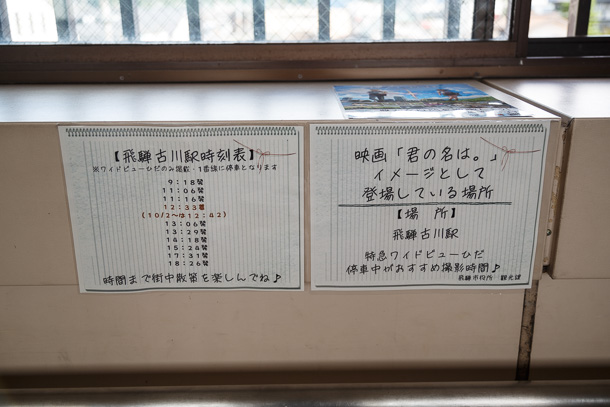 【飛騨古川駅時刻表】
※ワイドビューひだのみ掲載・1番線に停車となります
9:18発
11:06発
11:16発
12:33着
(10/2~は12:42)
13:06発
13:29発
14:18発
15:24発
17:31発
18:26発
時間まで街中散策を楽しんでね♪
映画「君の名は。」
イメージとして
登場している場所
【場 所】
飛騨古川駅
特急ワイドビューひだ
停車中がおすすめ撮影時間♪
飛騨市役所 観光課